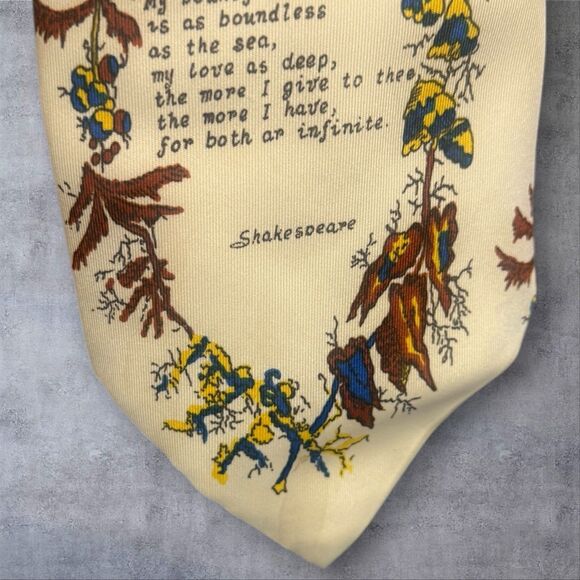 My bounty
is as boundless
as the sea,
my love as deep,
the more I give to thee,
the more I have,
for both ar infinite.
Shakespeare